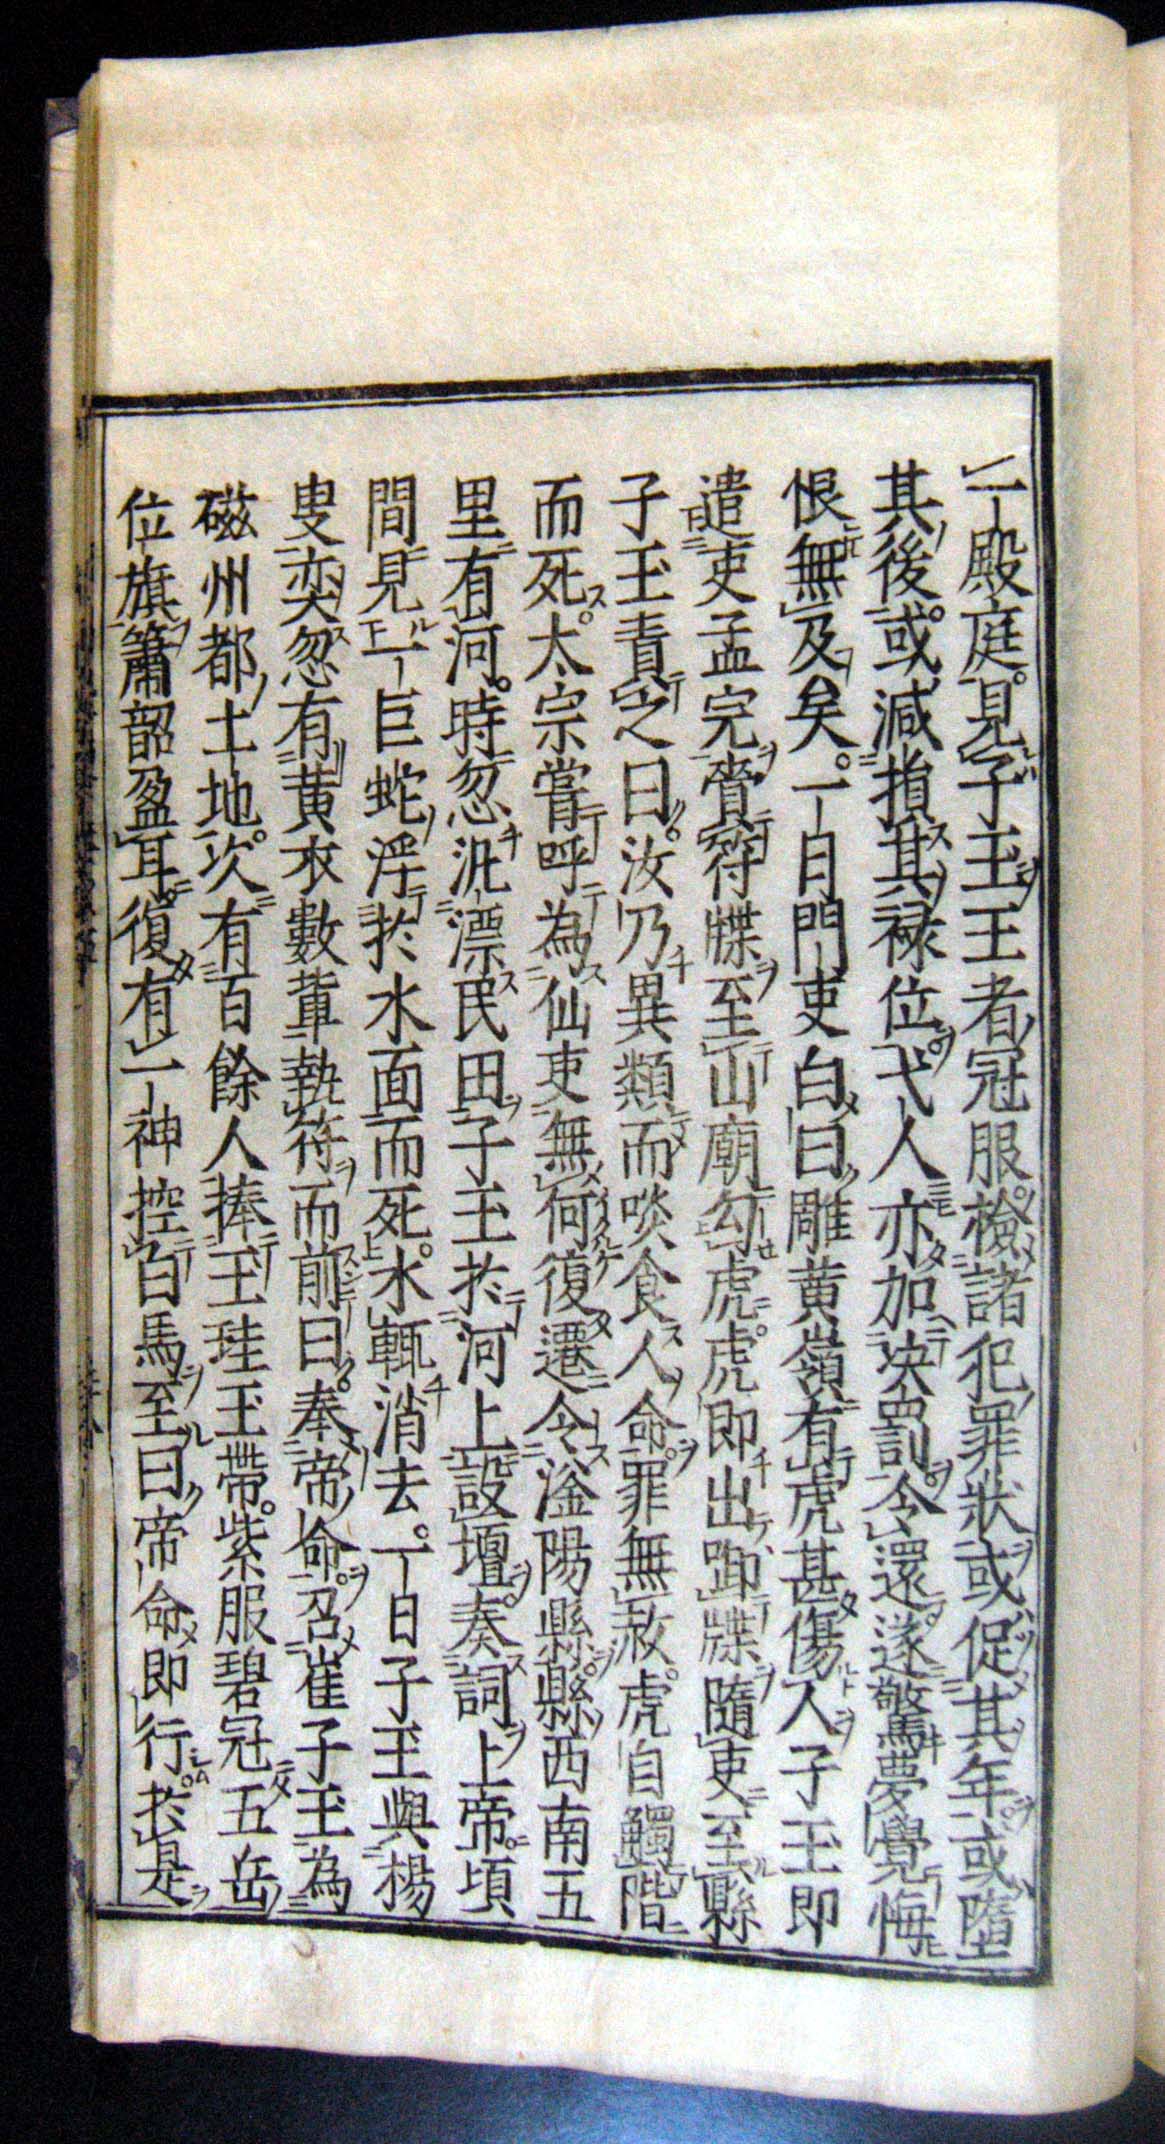 一殿庭見子玉王者冠服檢諸犯罪狀或促其年或墮
其後或減損其禄位弋人亦加决罰令還遂驚夢覺悔
恨無及矣一日門吏白曰雕黄嶺有虎甚傷人子玉即
遣吏孟完賫符牒至山廟勾虎虎即出啣牒隨吏至縣
子玉責之曰汝乃異類而啖食人命罪無赦虎自觸階
而死太宗嘗呼為仙吏無何復遷令滏陽縣縣西南五
里有河時忽汎漂民田子玉扵河上設壇奏詞上帝頃
間見一巨蛇浮扵水面而死水輒消去一日子玉與楊
叟奕忽有黄衣數輩執符而前曰奉帝命召崔子玉為
磁州都土地次有百餘人捧玉珪玉帶紫服碧冠五岳
位旗簫韶盈耳復有一神控白馬至曰帝命即行扵是